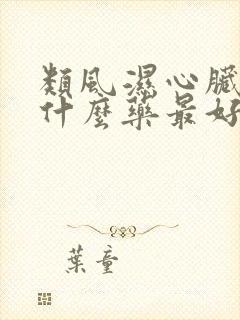 類風濕心臟
什麼藥最好
葉童